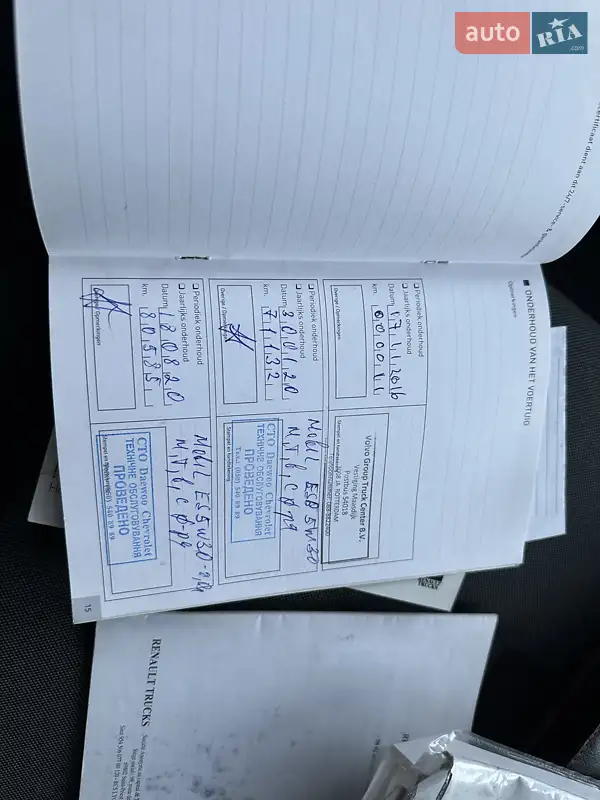 auto RIA .com
certificaat dient aan dit 24/7-service- &
ONDERHOUD VAN HET VOERTUIG
Opmerkingen
Periodiek onderhoud
Jaarlijks onderhoud
Datum 17112016
km.
Overige / Opmerkingen
Volvo Group Truck Center B.V.
Vestiging Maasdijk
Postbus 54018
3008 JA ROTTERDAM
Periodiek onderhoud
Jaarlijks onderhoud
Datum 300120
km. 71132
Overige / Opmerkingen
Mobil ESP 5W30
Stempel en handtekening
СТО Daewoo Chevrolet
ТЕХНІЧНЕ ОБСЛУГОВУВАННЯ
ПРОВЕДЕНО
Periodiek onderhoud
Jaarlijks onderhoud
Datum 180820
km. 80585
Overige / Opmerkingen
Mobil ES 5W30
СТО Daewoo Chevrolet
ТЕХНІЧНЕ ОБСЛУГОВУВАННЯ
ПРОВЕДЕНО
15
RENAULT TRUCKS